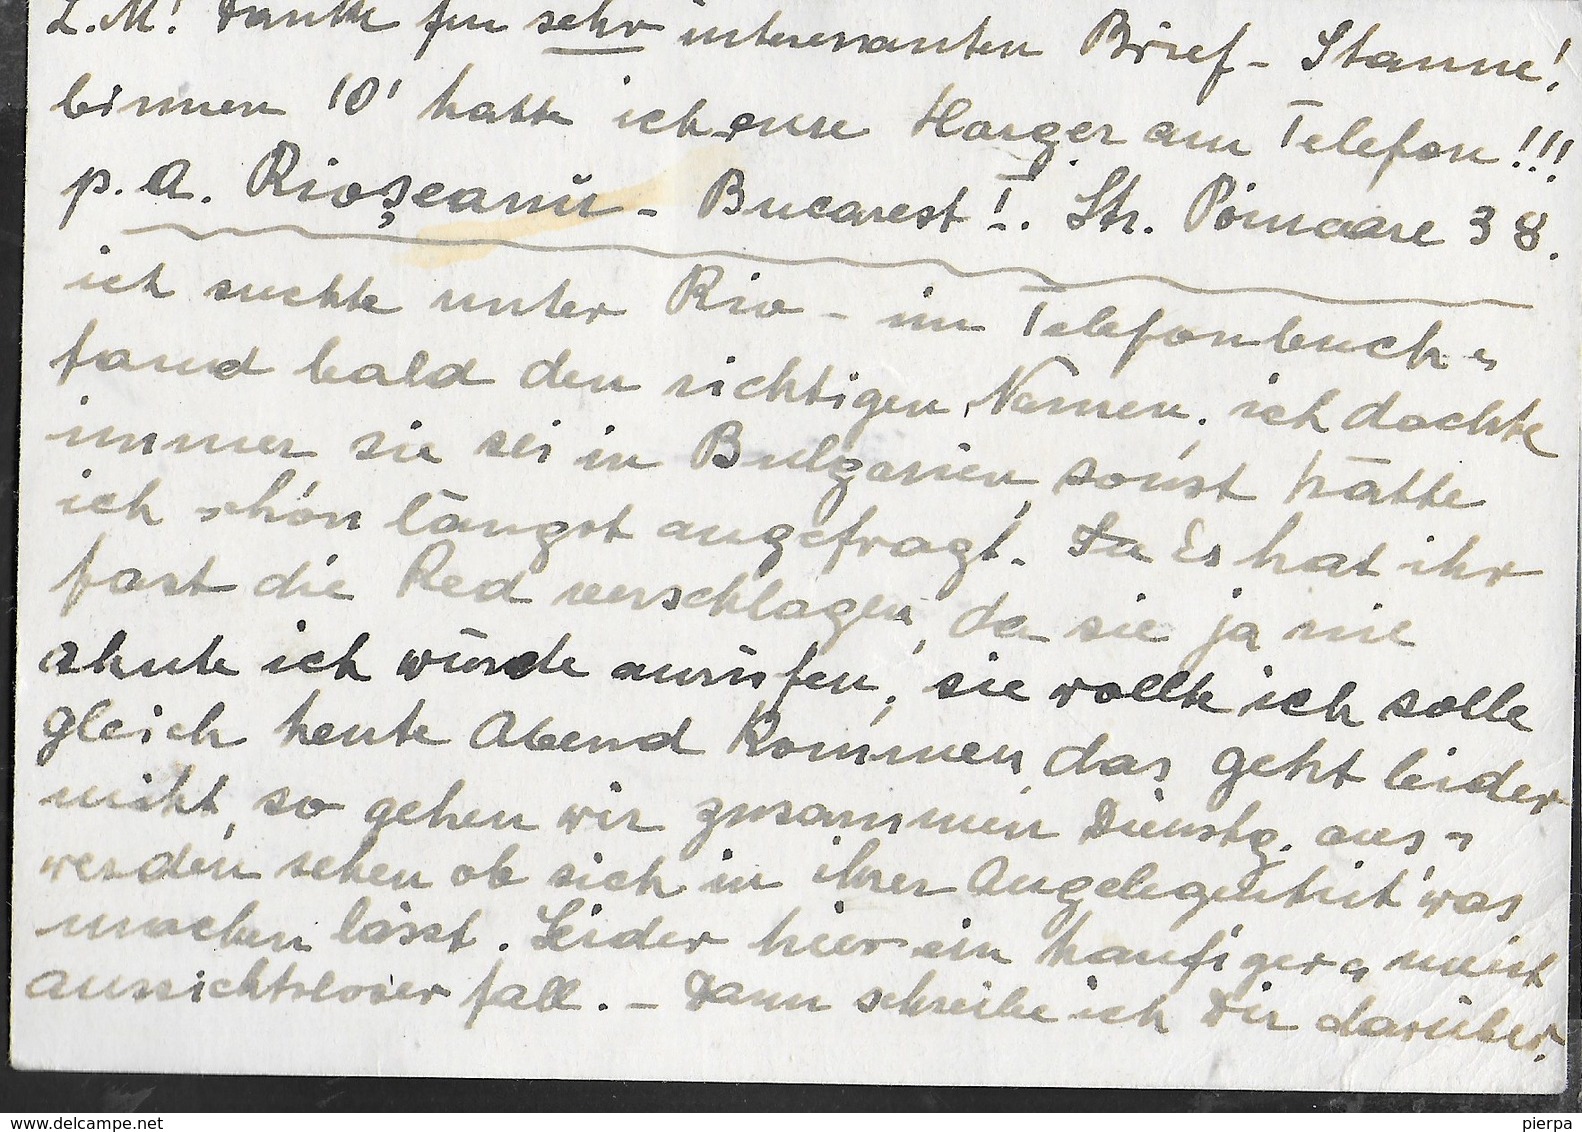 L.M! Danke für sehr interessanten Brief - Staune!
binnen 10' hatte ich eure Harger am Telefon!!!
p.A. Rioşeanŭ - Bucarest!. Str. Poinaare 38.
ich suchte unter Rio - im Telefonbuch u
fand bald den richtigen Namen. ich dachte
immer sie sei in Bulgarien, sonst hätte
ich schon längst angefragt. Es hat ihr
fast die Red verschlagen, da sie ja nie
ahnte ich würde anrufen, sie wollte ich solle
gleich heute Abend kommen, das geht leider
nicht, so gehen wir zusammen Dienstg. aus u
werden sehen ob sich in ihrer Angelegenheit was
machen lässt. Leider hier ein haufiger u meist
aussichtsloser fall. - Dann schreibe ich Dir darüber.
www.delcampe.net
pierpa